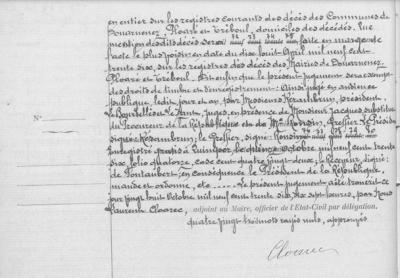 en entier sur les registres courants des décès des Communes de
Douarnenez, Ploaré et Tréboul, domiciles des décédés. Une
mention des dits décès sera faite en marge de
l'acte le plus voisin en date du dix huit Avril mil neuf cent
trente six, sur les registres des décès des Mairies de Douarnenez
Ploaré et Tréboul. Dit enfin que le présent jugement sera exempt
des droits de timbre et d'enregistrement : Ainsi jugé en audience
publique, ledit jour et an, par Messieurs Kérambrun, président,
Juges, en présence de Monsieur Jacques, substitut
du Procureur de la République et de Me Greffier. Le Président
signé : Kérambrun ; le Greffier, signé :
Enregistré gratis à Quimper le Octobre mil neuf cent trente
six, folio quatorze, case cent quatre vingt deux ; le Receveur, signé :
de Pontaubert ; en conséquence le Président de la République
mande et ordonne, etc ---- Le présent jugement a été transcrit ce
jour vingt huit Octobre mil neuf cent trente six, dix sept heures, par Nous
Laurent Cloarec, adjoint au Maire, officier de l'Etat-Civil par délégation.
quatre vingt trois mots rayés nuls, approuvés
Cloarec
N°